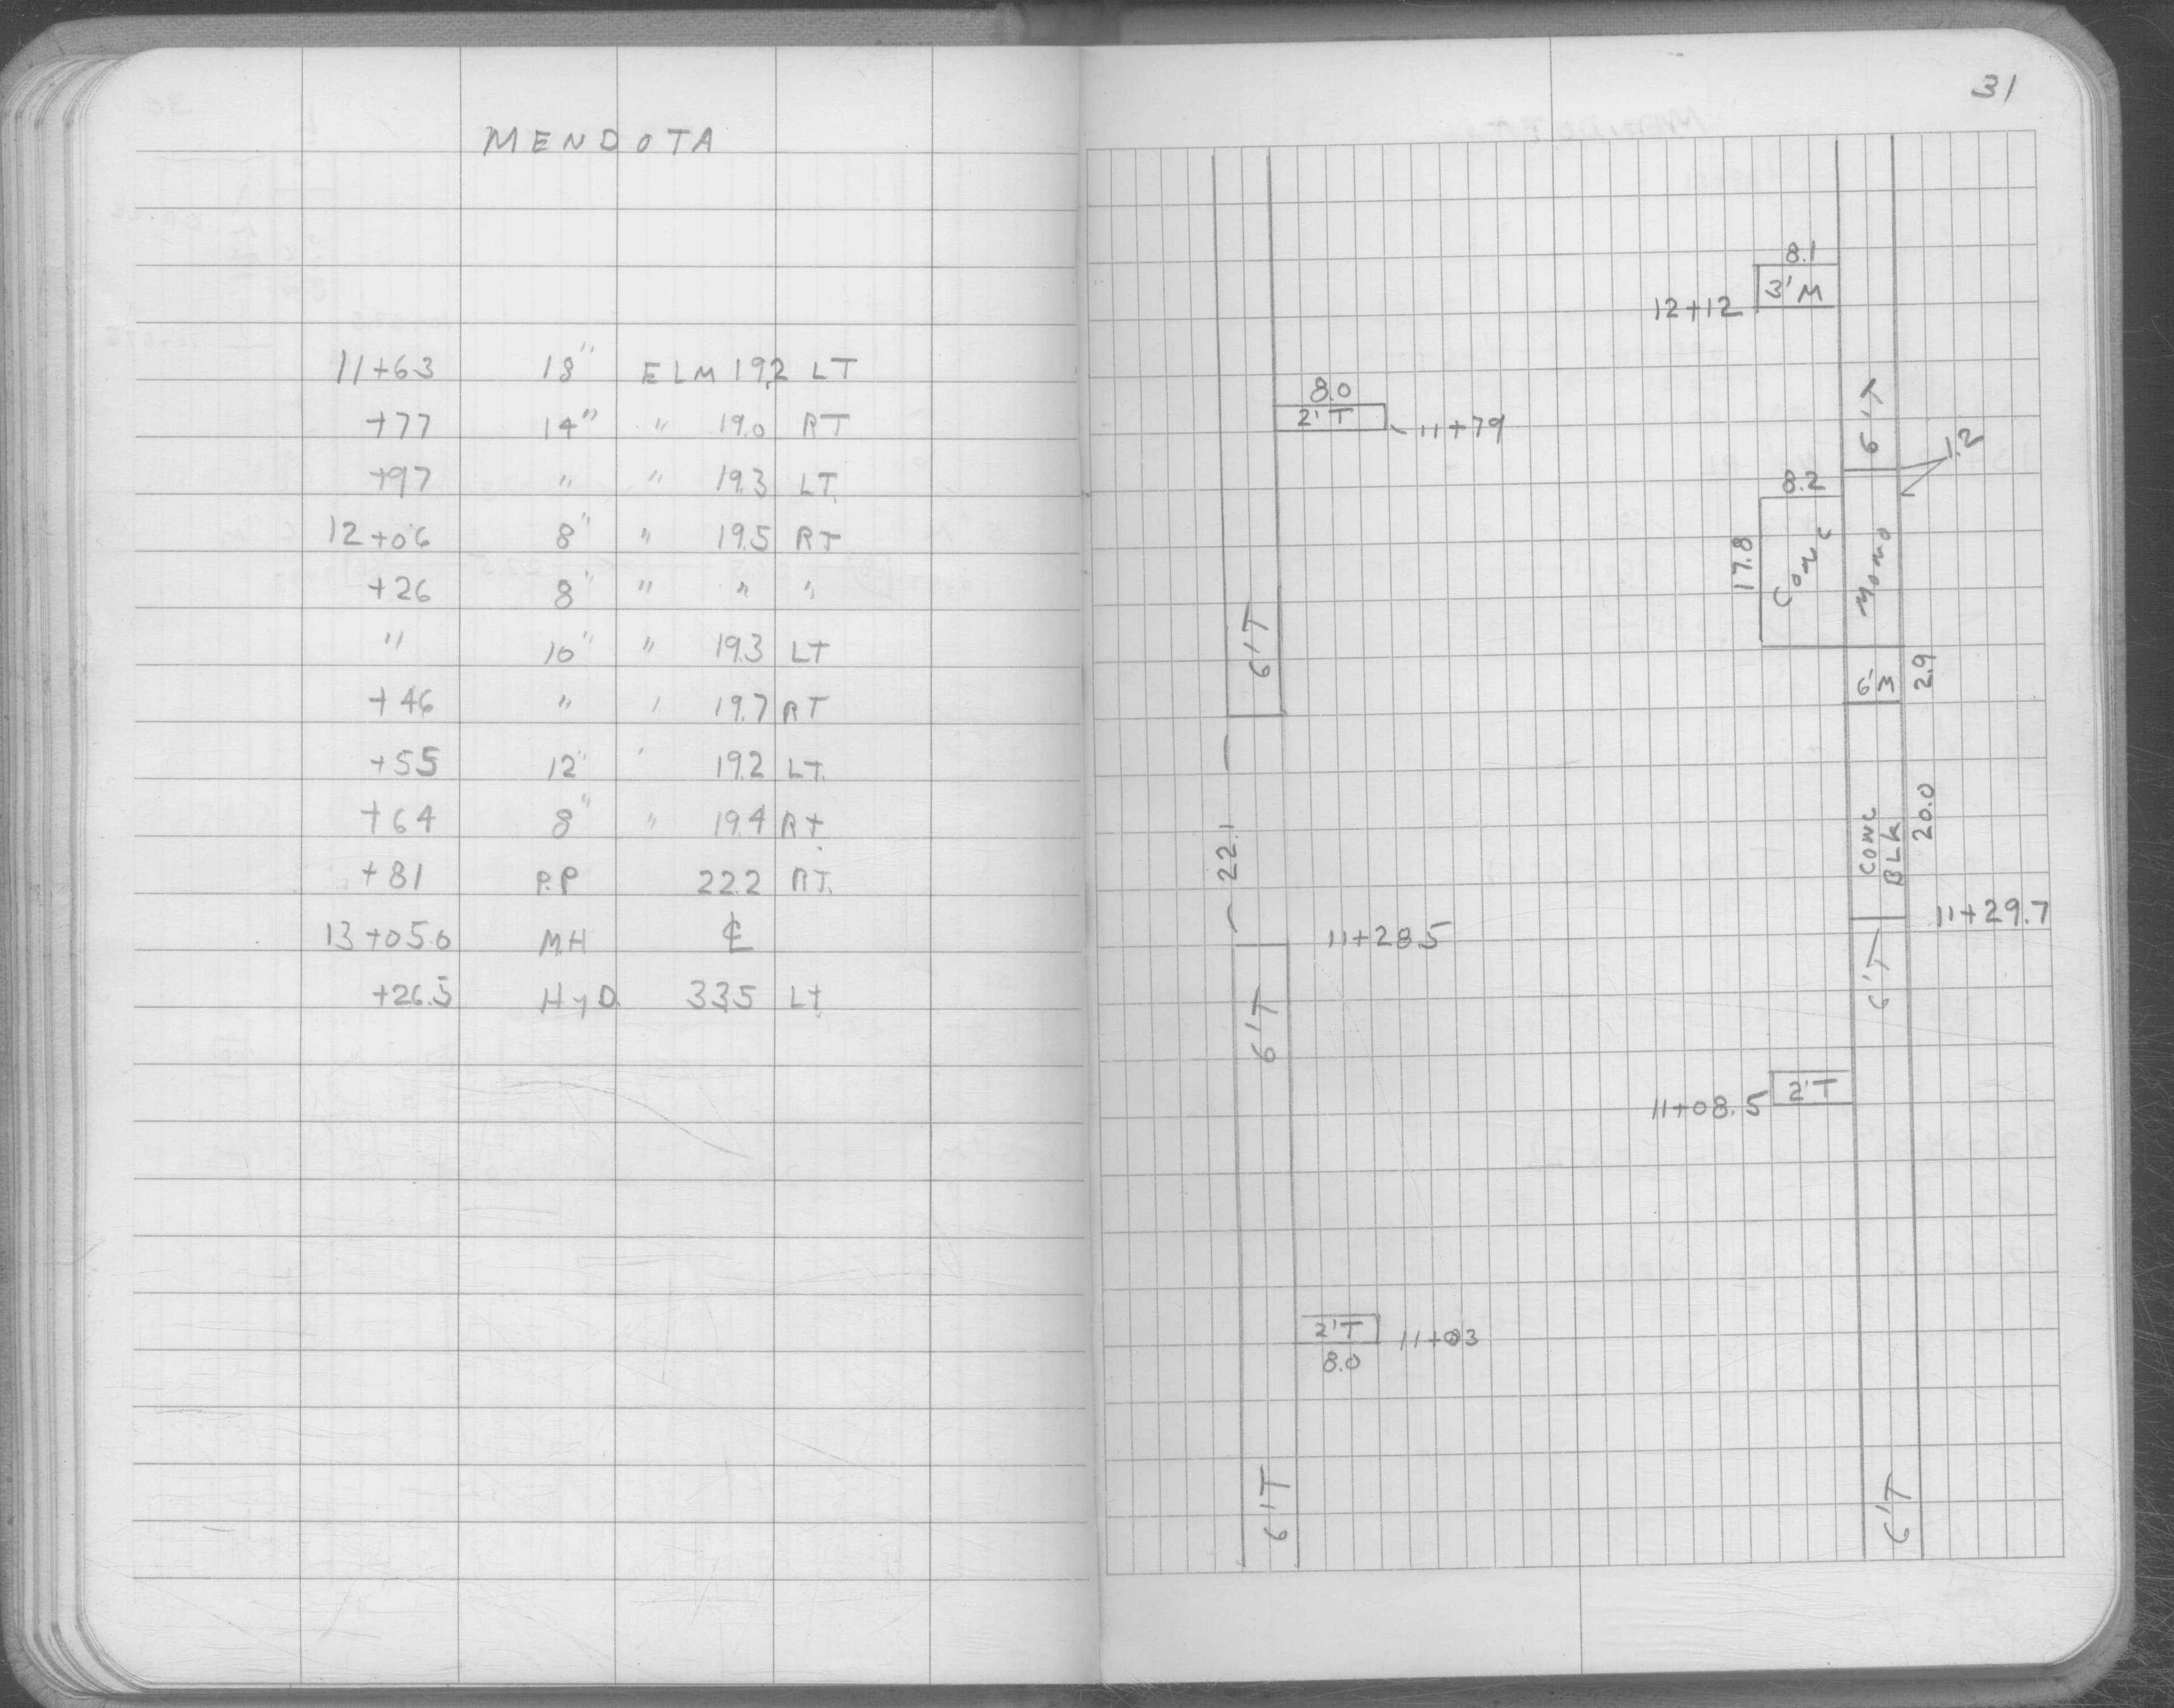 MENDOTA
11+63 18" ELM 19.2 LT
+77 14" " 19.0 RT
+97 " " 19.3 LT.
12+06 8" " 19.5 RT
+26 8" " " "
" 10" " 19.3 LT
+46 " " 19.7 RT
+55 12" " 19.2 LT.
+64 8" " 19.4 RT
+81 P.P 22.2 RT.
13+05.0 MH ℄
+26.5 HYD. 33.5 LT
31
8.1
3'M
12+12
8.0
2'T
11+79
6'T
1.2
8.2
CONC
17.8
MONO
6'T
6'M
2.9
22.1
CONC
BLK
20.0
11+28.5
11+29.7
6'T
6'T
2'T
11+08.5
2'T
11+03
8.0
6'T
6'T